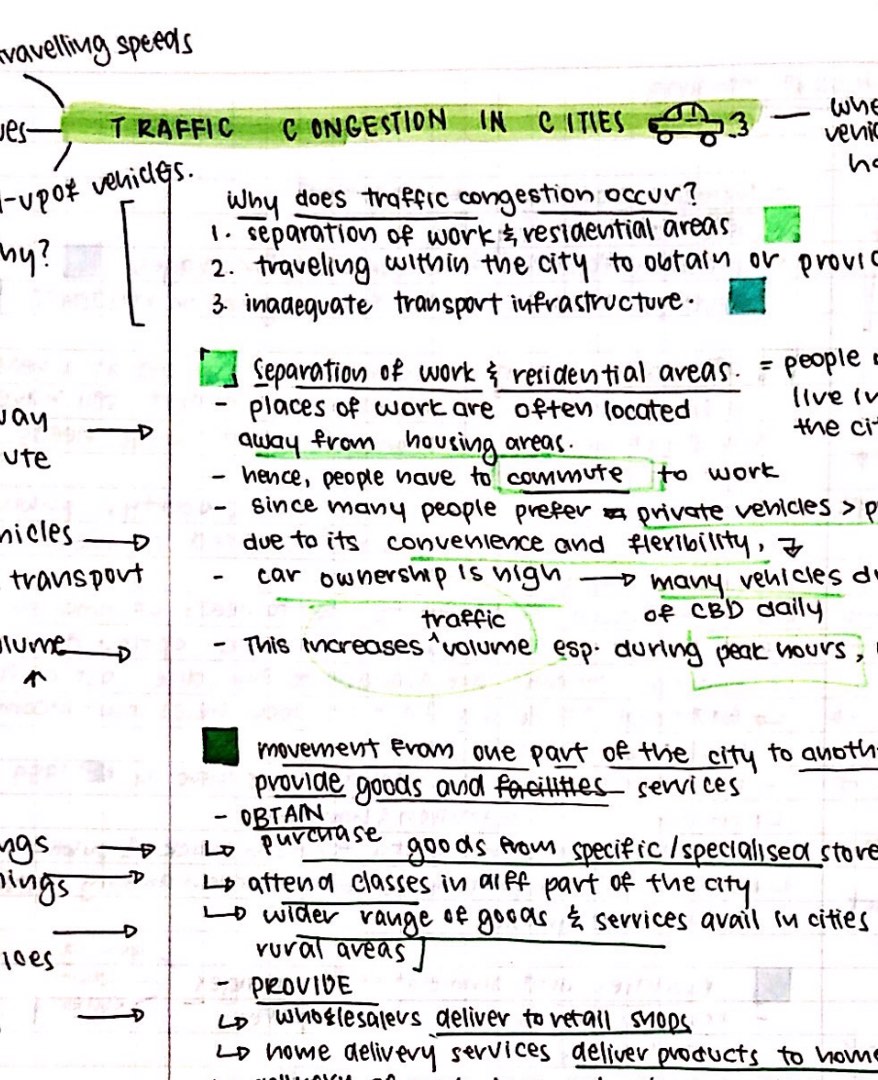 travelling speeds
TRAFFIC CONGESTION IN CITIES
vehicles.
Why does traffic congestion occur?
1. separation of work & residential areas
2. traveling within the city to obtain or provid
3. inadequate transport infrastructure.
Separation of work & residential areas. = people
- places of work are often located
away from housing areas.
the cit
- hence, people have to commute to work
- since many people prefer private vehicles > p
due to its convenience and flexibility,
- car ownership is high → many vehicles d
of CBD daily
traffic
- This increases ^ volume esp. during peak hours,
movement from one part of the city to anoth
provide goods and facilities services
- OBTAIN
↳ purchase goods from specific/specialised store
↳ attend classes in diff part of the city
↳ wider range of goods & services avail in cities
rural areas]
- PROVIDE
↳ wholesalers deliver to retail shops
↳ home delivery services deliver products to home
hy?
way →
ute
hicles →
transport
olume →
↑
ngs →
hings →
→
ices
→